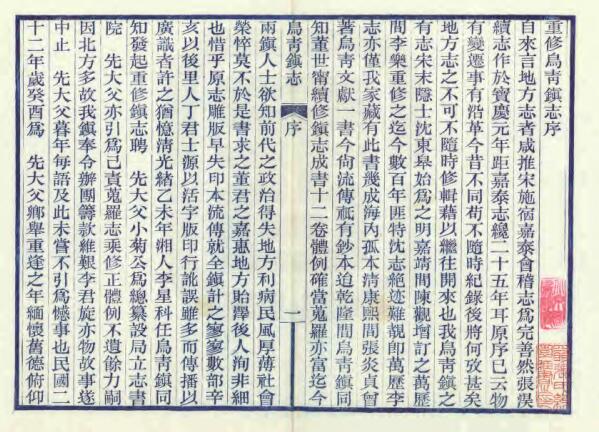 重修烏青鎮志序
自來言地方志者咸推宋施宿嘉泰會稽志爲完善然張淏
續志作於寳慶元年距嘉泰志纔二十五年耳原序已云物
有變遷事有沿革今昔不同苟不隨時紀錄後將何攷甚矣
地方志之不可不隨時修輯藉以繼往開來也我烏青鎮之
有志宋末隱士沈東皋始爲之明嘉靖間陳觀增訂之萬歷
間李樂重修之迄今數百年匪特沈志絕迹難覩卽萬歷李
志亦僅我家藏有此書幾成海內孤本淸康熙間張炎貞曾
著烏青文獻一書今尙流傳祗有鈔本迨乾隆間烏青鎮同
知董世甯續修鎮志成書十二卷體例確當蒐羅亦富迄今
烏青鎮志
序
一
兩鎮人士欲知前代之政治得失地方利病民風厚薄社會
榮悴莫不於是書求之董君之嘉惠地方貽澤後人洵非細
也惜乎原志雕版早失印本流傳就全鎮計之寥寥數部辛
亥以後里人丁君士源以活字版印行訛誤雖多而傳播以
廣識者許之猶憶淸光緒乙未年湘人李星科任烏青鎮同
知發起重修鎮志聘 先大父小菊公爲總纂設局立志書
院 先大父亦引爲己責蒐羅志乘修正體例不遺餘力嗣
因北方多故我鎮奉令辦團籌款維艱李君旋亦物故事遂
中止 先大父暮年每語及此未嘗不引爲憾事也民國二
十二年歲癸酉爲 先大父鄉舉重逢之年緬懷舊德俯仰